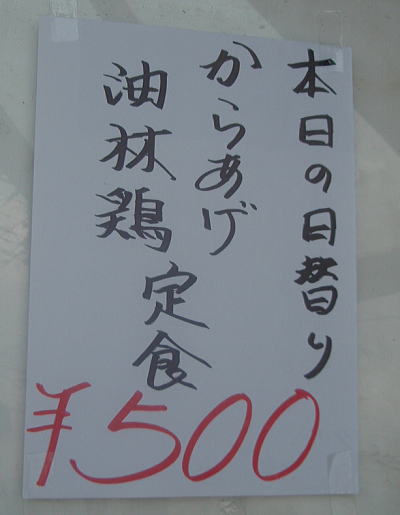 本日の日替り
からあげ
油林鶏定食
¥500